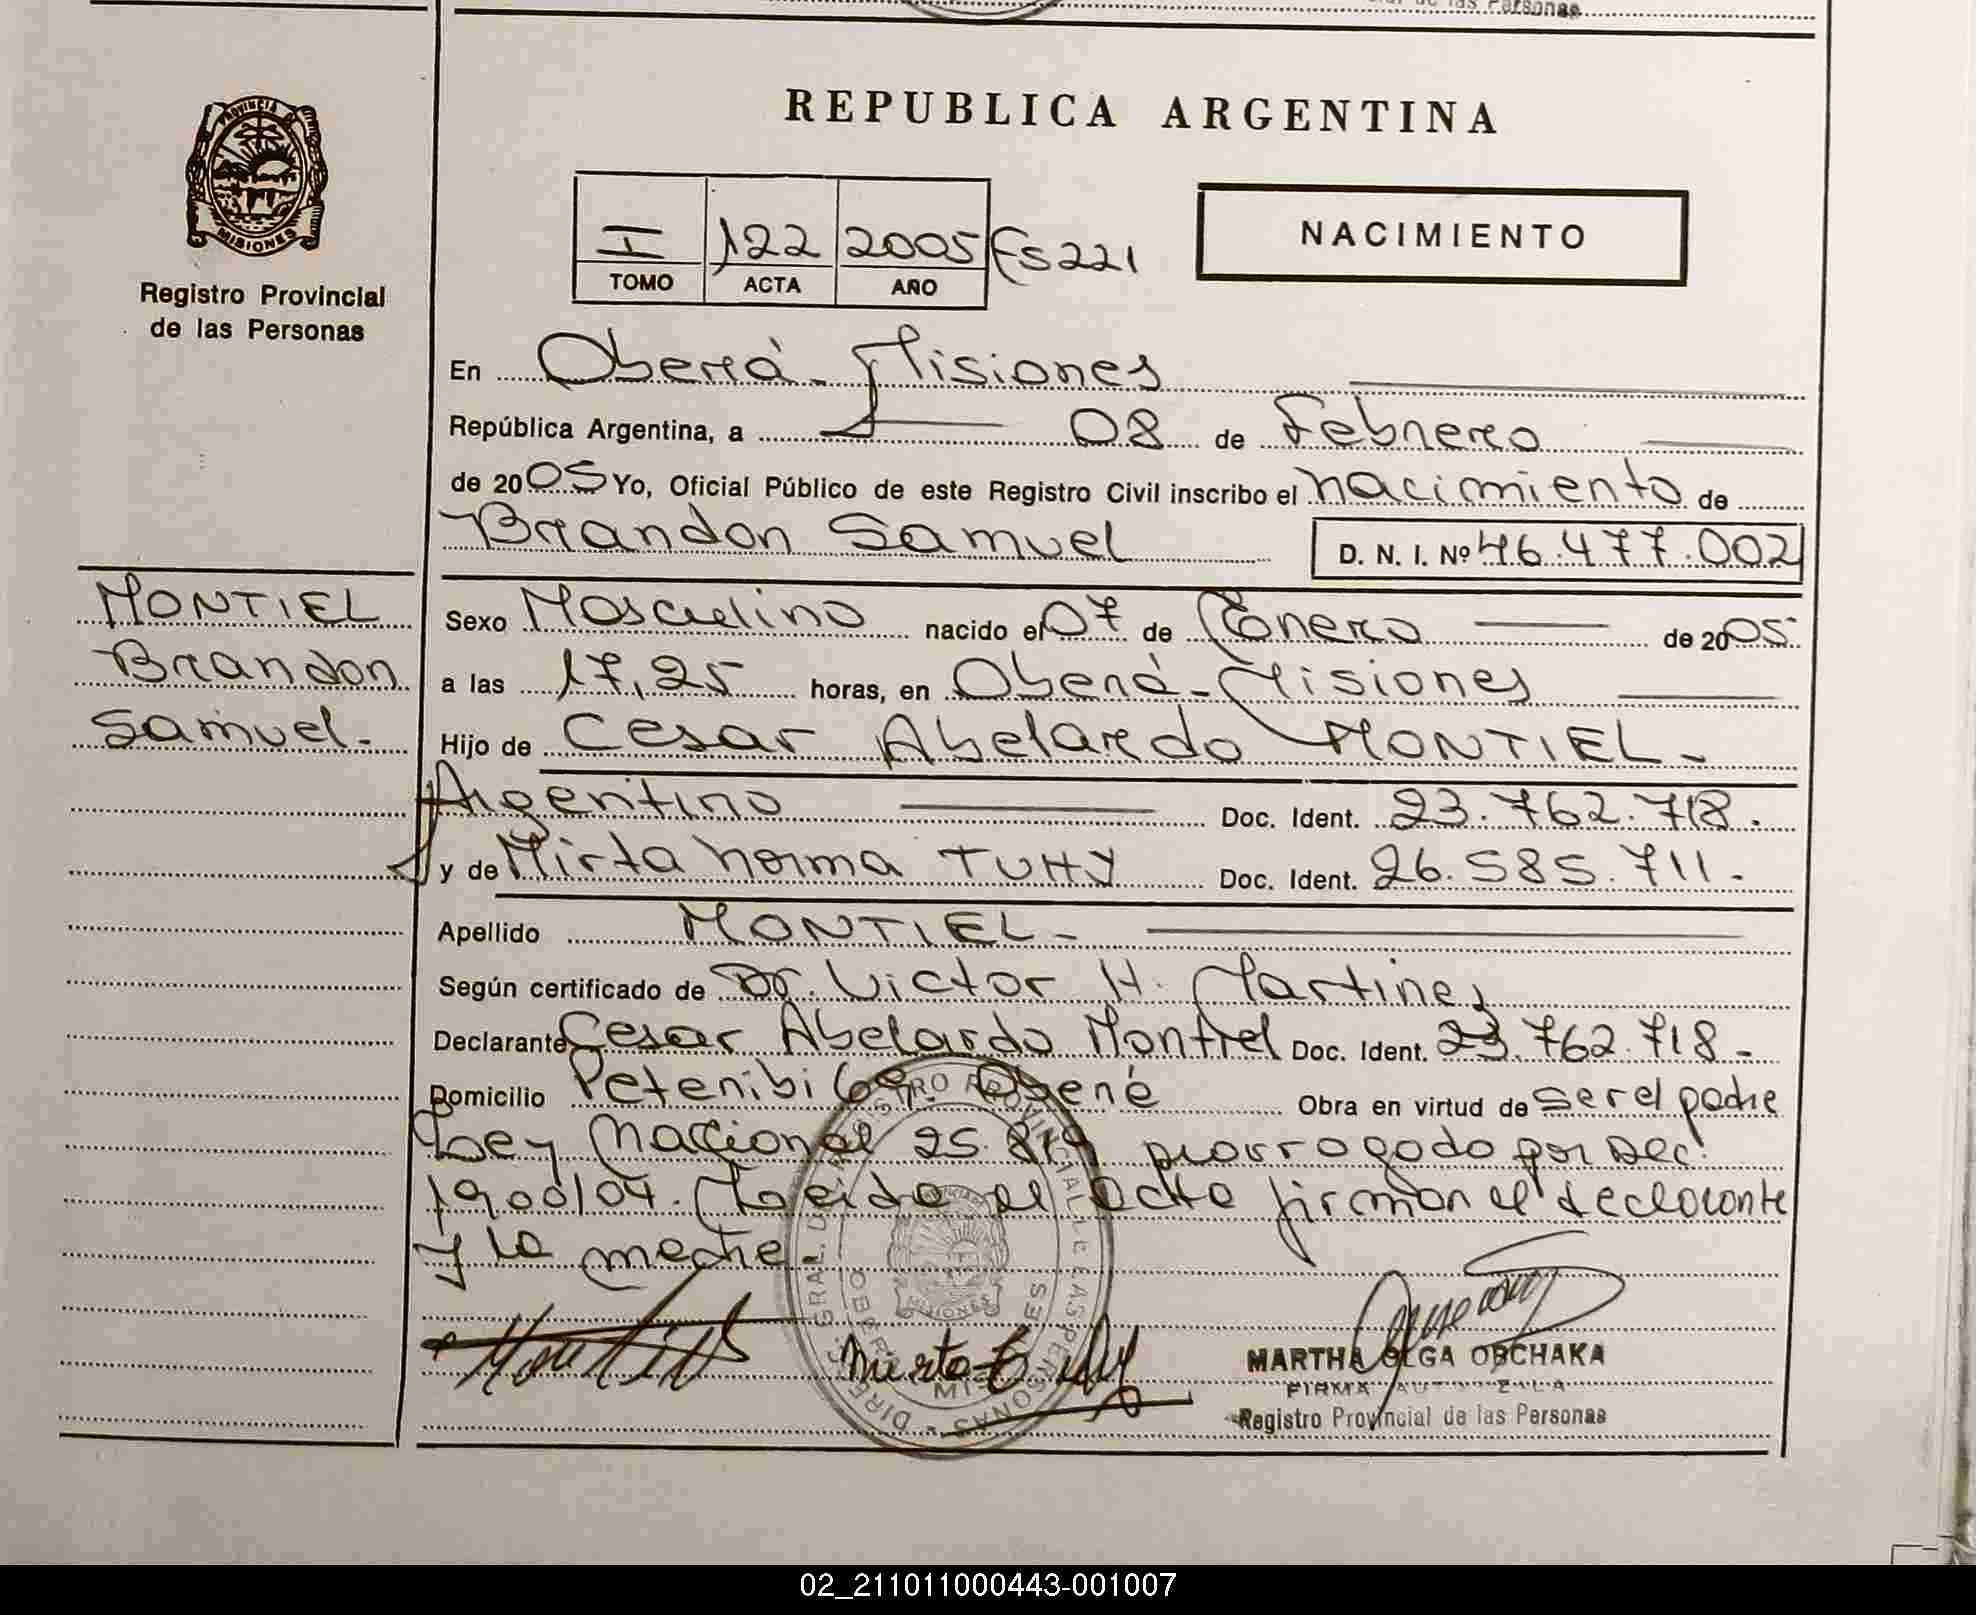 de las Personas
REPUBLICA ARGENTINA
PROVINCIA DE
MISIONES
Registro Provincial
de las Personas
I 122 2005 Fs 221
TOMO ACTA AÑO
NACIMIENTO
En Oberá - Misiones
República Argentina, a 08 de Febrero
de 2005 Yo, Oficial Público de este Registro Civil inscribo el nacimiento de
Brandon Samuel D. N. I. Nº 46.477.002
MONTIEL
Brandon
Samuel.-
Sexo Masculino nacido el 07 de Enero de 2005
a las 17,25 horas, en Oberá - Misiones
Hijo de Cesar Abelardo MONTIEL -
Argentino Doc. Ident. 23.762.718.
y de Mirta Norma TUHY Doc. Ident. 26.585.711.-
Apellido MONTIEL -
Según certificado de Dr. Victor H. Martinez
Declarante Cesar Abelardo Montiel Doc. Ident. 23.762.718 -
Domicilio Oberá Obra en virtud de ser el padre
Ley Nacional 25.819 prorrogado por Dec.
1900/04. Leida el acta firman el declarante
y la madre
MARTHA OLGA OBCHAKA
FIRMA AUTORIZADA
Registro Provincial de las Personas
02_211011000443-001007